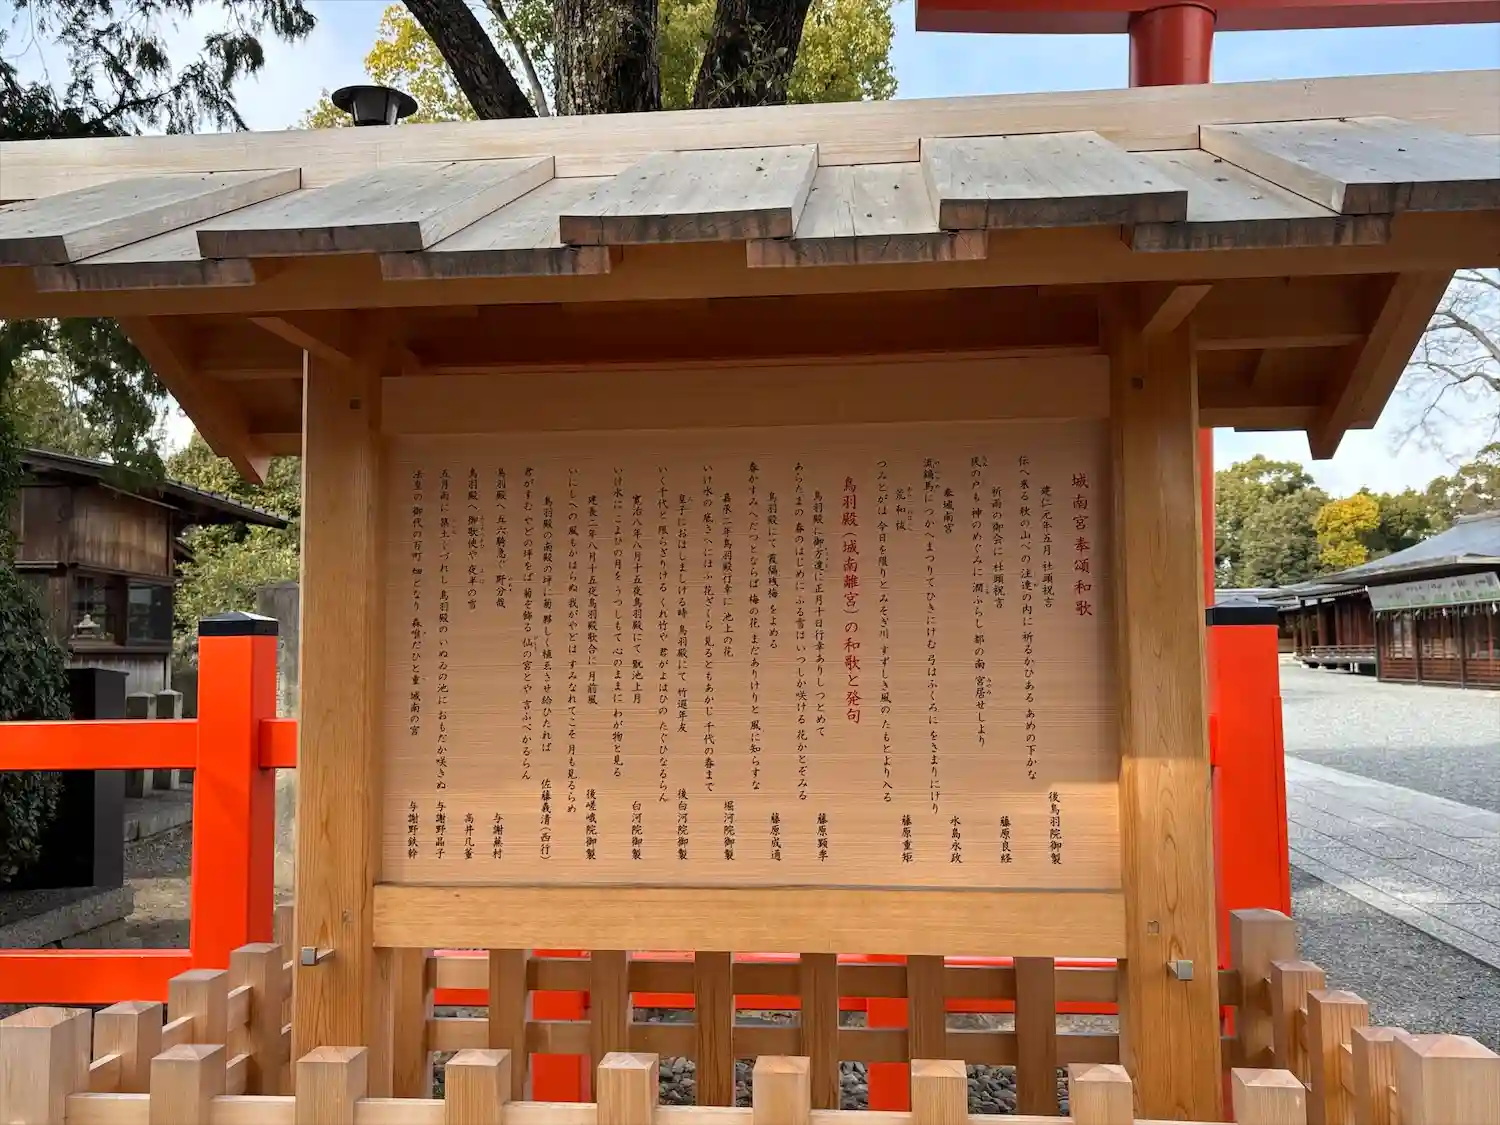 城南宮奉頌和歌
建仁元年五月 社頭祝言
後鳥羽院御製
伝へ来る 秋の山べの 注連の内に 祈るかひある あめの下かな
祈雨の御会に 社頭祝言
藤原良経
民の戸も 神のめぐみに 潤ふらし 都の南 宮居せしより
奉城南宮
水島永政
流鏑馬に つかへまつりて ひきにけむ 弓はふくろに をさまりにけり
荒和祓
藤原重矩
つみとがは 今日を限りと みそぎ川 すずしき風の たもとより入る
鳥羽殿(城南離宮)の和歌と発句
鳥羽殿に御方違に正月十日行幸ありし つとめて
藤原顕季
あらたまの 春のはじめに ふる雪は いつしか咲ける 花かとぞみる
鳥羽殿にて 霞隔残梅 をよめる
藤原成通
春がすみ へだつとならば 梅の花 まだありけりと 風に知らすな
嘉承二年鳥羽殿行幸に 池上の花
堀河院御製
いけ水の 底さへにほふ 花ざくら 見るともあかじ 千代の春まで
皇子におはしましける時 鳥羽殿にて 竹遐年友
後白河院御製
いく千代と 限らざりける くれ竹や 君がよはひの たぐひなるらん
寛治八年八月十五夜鳥羽殿にて 翫池上月
白河院御製
いけ水に こよひの月を うつしもて 心のままに わが物と見る
建長二年八月十五夜鳥羽殿歌合に 月前風
後嵯峨院御製
いにしへの 風もかはらぬ 我がやどは すみなれてこそ 月も見るらめ
鳥羽殿の南殿の坪に菊夥しく植ゑさせ給ひたれば
佐藤義清(西行)
君がすむ やどの坪をば 菊ぞ飾る 仙の宮とや 言ふべかるらん
鳥羽殿へ 五六騎急ぐ 野分哉
与謝蕪村
鳥羽殿へ 御歌使や 夜半の雪
高井几董
五月雨に 築土くづれし 鳥羽殿の いぬゐの池に おもだか咲きぬ
与謝野晶子
法皇の 御代の百町 畑となり 森唯だひと重 城南の宮
与謝野鉄幹